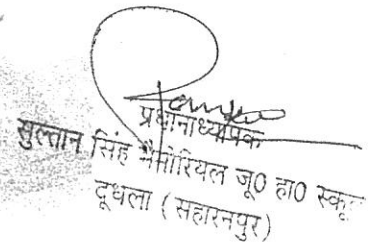 प्रधानाध्यापक
सुल्तान सिंह मैमोरियल जू0 हा0 स्कूल
दूधला ( सहारनपुर )